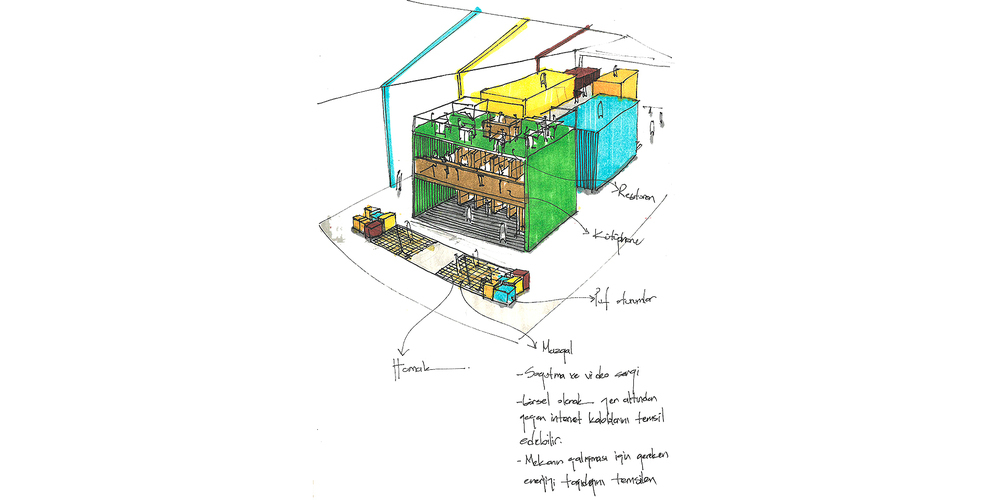 Restoran
Kütüphane
Puf oturumlar
Hamak
Mazgal
- Soğutma ve video sergi
- olarak yer altından
geçen internet kablolarını temsil
edebilir.
- Mekanın çalışması için gereken
enerjiyi taşıdığını temsilen